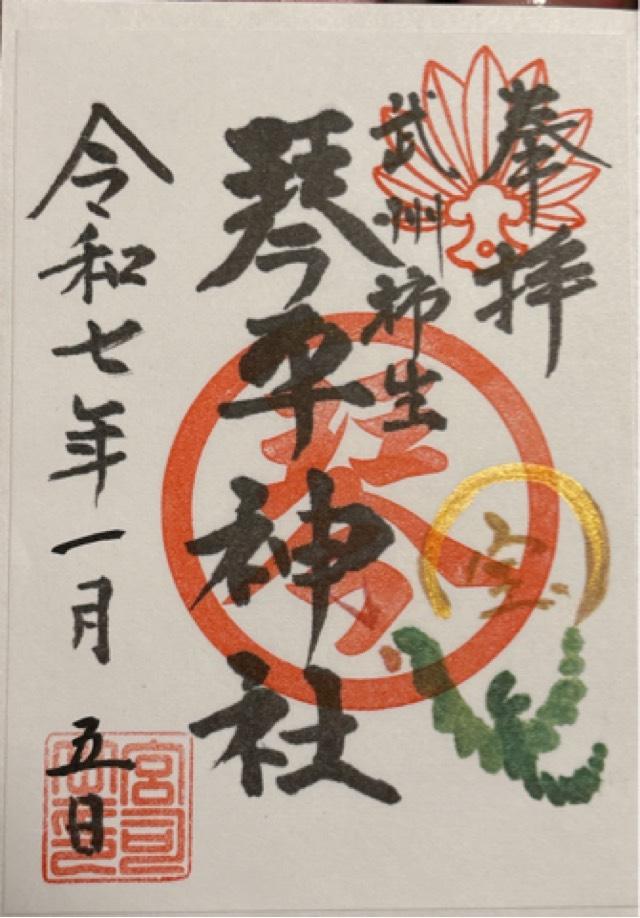 奉拝
武州柿生
琴平神社
令和七年一月五日
琴
宝
宮司